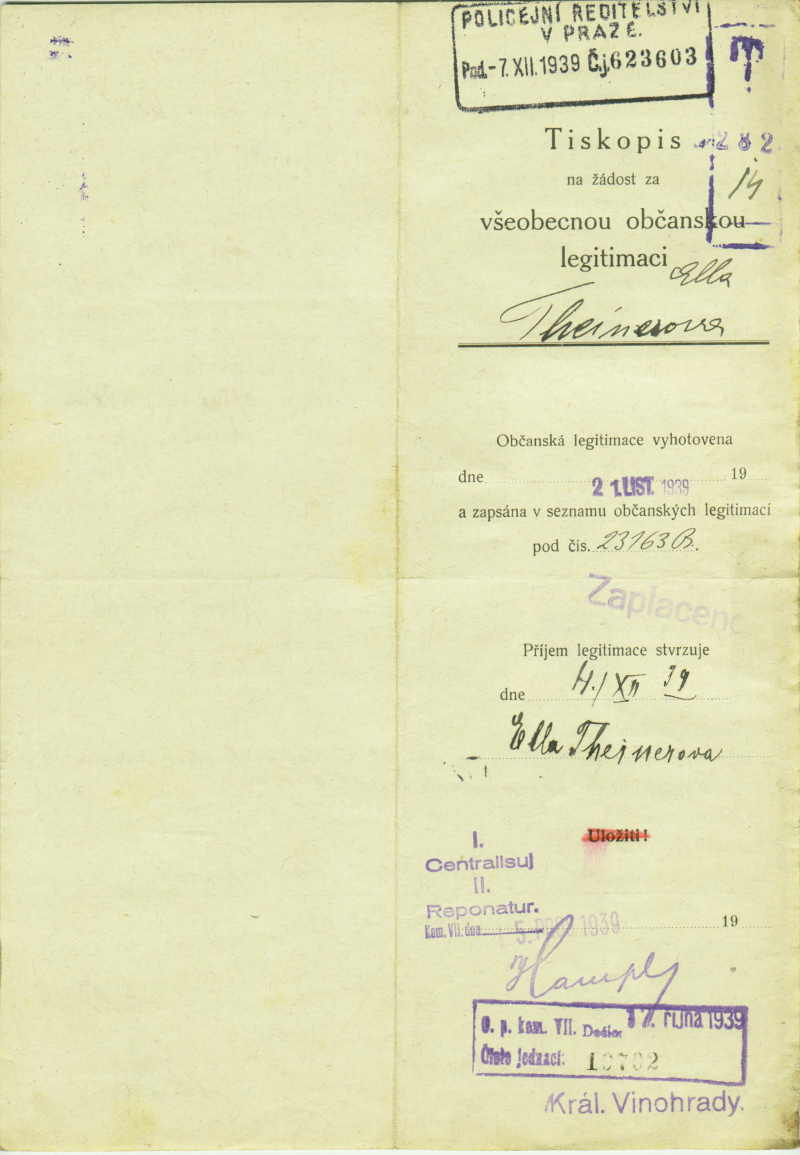 POLICEJNÍ ŘEDITELSTVÍ
V PRAZE.
Pod.-7.XII.1939 Č.j.623603
Tiskopis
282
na žádost za
14
všeobecnou občanskou
legitimaci Ella
Theinerova
Občanská legitimace vyhotovena
dne 21.LIST. 1939 19
a zapsána v seznamu občanských legitimací
pod čís. 23163 B.
Zaplaceno
Příjem legitimace stvrzuje
dne 4./XII 39
Ella Theinerova
Uložiti!
I.
Centralisuj
II.
Reponatur.
Kom. VII. dne 5. PROS. 1939 19
O. p. kom. VII. Došlo: 17. října 1939
Číslo jednací:
Král. Vinohrady.